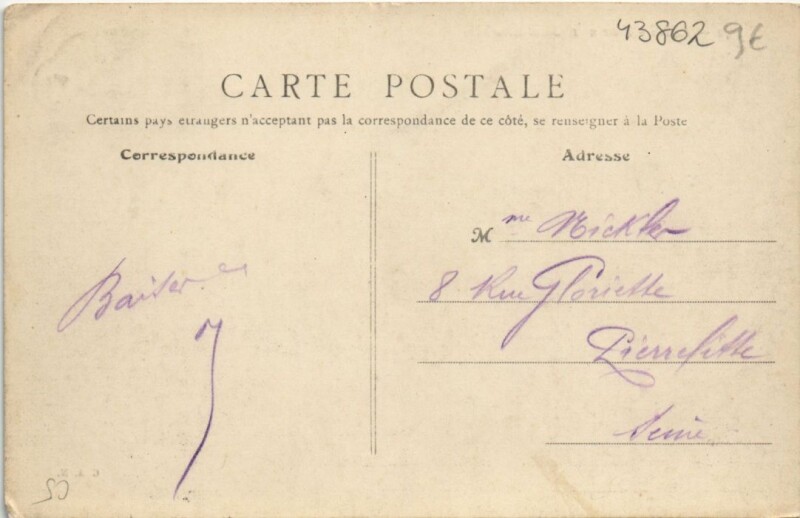 43862 9€
CARTE POSTALE
Certains pays étrangers n'acceptant pas la correspondance de ce côté, se renseigner à la Poste
Correspondance
Adresse
Mme Nickler
8 Rue Gloriette
Pierrefitte
Seine
Baiser
50